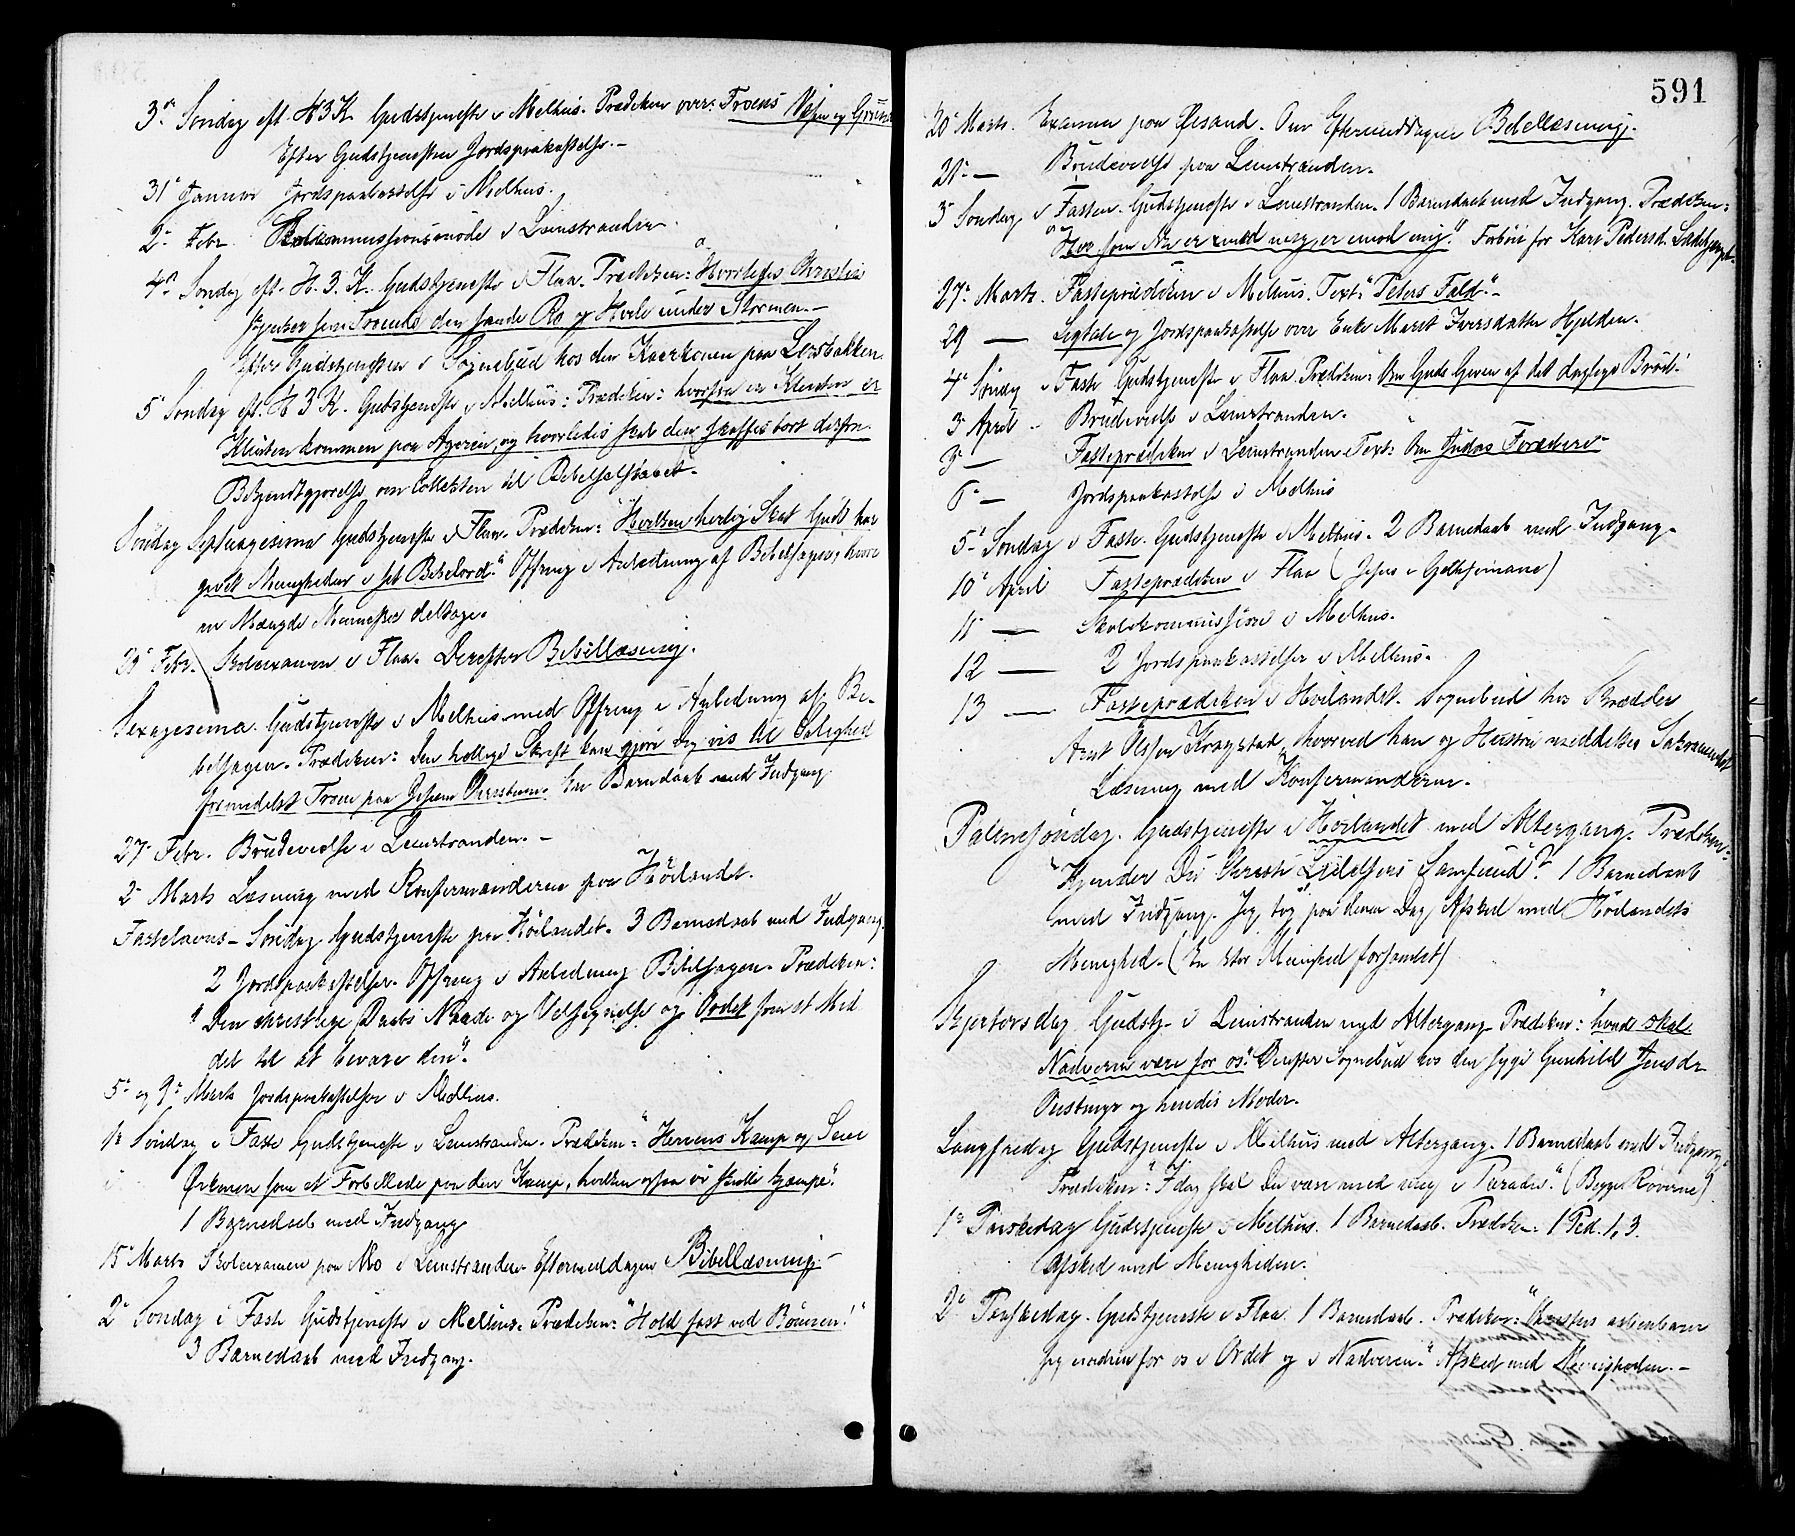 3die Søndag eft. H3K. Gudstjeneste i Melhus. Prædiken over: Troens Væsen og Grund
Efter Gudstjenesten Jordspaakastelse.-
31te Januar Jordspaakastelse i Melhus.
2den Febr Skolecommissionsmøde i Leinstranden.
4de Søndag eft. H. 3. K. Gudstjeneste i Flaa. Prædiken: "Hvorledes Christus
skjenker sine Troende den sande Ro og Hvile under Stormen.-
Efter Gudstjenesten i Sognebud hos den Kaarkonen paa Lersbakken.
5te Søndag eft. H 3 K. Gudstjeneste i Melhus: Prædiken: hvorfra er Klinten er
Klinten kommen paa Ageren, og hvorledes skal den skaffes bort derfra.
Bekjendtgjørelse om Collekten til Bibelselskabet.
Søndag Septuagesima Gudstjeneste i Flaa. Prædiken: "Hvilken herlig Skat Gud har
givet Menigheden i sit Bibelord." Offring i Anledning af Bibelsagen, hvori
en Mængde Mennesker deltoge.
23de Febr. Skoleexamen i Flaa. Derefter Bibellæsning.
Sexagesima. Gudstjeneste i Melhus med Offring i Anledning af Bi-
belsagen. Prædiken: Den hellige Skrift kan gjøre Dig vis til Salighed
formedelst Troen paa Jesum Christum. En Barnedaab med Indgang
27de Febr. Brudevielse i Leinstranden.-
2den Marts Læsning med Konfirmanderne paa Höilandet.
Fastelavns-Søndag Gudstjeneste paa Höilandet. 3 Barnedaab med Indgang.
2 Jordspaakastelser. Offring i Anledning Bibelsagen. Prædiken:
"Den christelige Daabs Naade og Velsignelse og Ordet som et Mid-
del til at bevare den".
5te og 9de Marts Jordspaakastelser i Melhus.
1ste Søndag i Faste Gudstjeneste i Leinstranden. Prædiken: "Herrens Kamp og Seier
i Ørkenen som et Forbillede paa den Kamp, hvilken ogsaa vi skulle kjæmpe."
1 Barnedaab med Indgang
15de Marts Skoleexamen paa Mo i Leinstranden. Eftermiddagen Bibellæsning.-
2den Søndag i Faste Gudstjeneste i Melhus. Prædiken: "Hold fast ved Bønnen!"
3 Barnedaab med Indgang.
591
20de Marts. Examen paa Øisand. Om Eftermiddagen Bibellæsning.
21de — Brudevielse paa Leinstranden.
3die Søndag i Fasten. Gudstjeneste i Leinstranden. 1 Barnedaab med Indgang. Prædiken:
"Hvo som ikke er med mig, er imod mig." Forbøn for Kari Pedersd.
27de Marts. Fasteprædiken i Melhus. Text: "Peters Fald."-
29 — Ligtale og Jordspaakastelse over Enke Marit Iversdatter Hjelden.
4de Søndag i Faste Gudstjeneste i Flaa. Prædiken: Om Guds Gaven af det daglige Brød.
3 April - Brudevielse i Leinstranden.
3die — Fasteprædiken i Leinstranden Text: Om Judas Forræderi
6te — Jordspaakastelse i Melhus
5te Søndag i Faste. Gudstjeneste i Melhus. 2 Barnedaab med Indgang.
10de April Fasteprædiken i Flaa (Jesus i Gethsemane)
11 — Skolekommission i Melhus.
12 — 2 Jordspaakastelser i Melhus.
13 — Fasteprædiken i Höilandet. Sognebud hos Skrædder
Arnt Olsen Kregstad, hvorved han og Hustru meddeltes Sakramentet
Læsning med Konfirmanderne.
Palmesøndag. Gudstjeneste i Höilandet med Altergang. Prædiken:
"Kjender Du Christi Lidelsers Samfund?" 1 Barnedaab
med Indgang. Jeg tog paa denne Dag Afsked med Höilandets
Menighed. (En stor Menighed forsamlet)
Skjertorsdag Gudstj. i Leinstranden med Altergang Prædiken: "hvad skal
Nadveren være for os". Derefter Sognebud hos den syge Gunhild Jensdr
Øustmyr og hendes Moder.
Langfredag Gudstjeneste i Melhus med Altergang. 1 Barnedaab med Indgang.
Prædiken: "I dag skal Du være med mig i Paradis". (Begge Røverne).
1ste Paaskedag Gudstjeneste i Melhus. 1 Barnedaab. Prædiken: 1 Ped. 1, 3.
Afsked med Menigheden.
2den Paaskedag. Gudstjeneste i Flaa. 1 Barnedaab. Prædiken: "Christus aabenbarer
sig endnu for os i Ordet og i Nadveren." Afsked med Menigheden.-